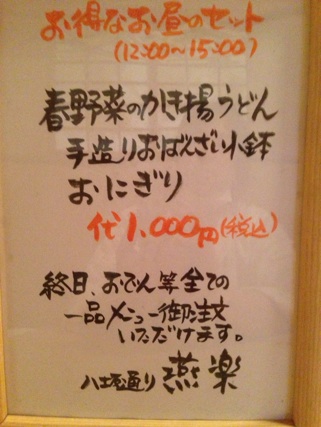 お得なお昼のセット
(12:00〜15:00)
春野菜のかき揚うどん
手造りおばんざい小鉢
おにぎり
代1,000円(税込)
終日、おでん等全ての
一品メニュー御注文
いただけます。
八坂通り 燕楽